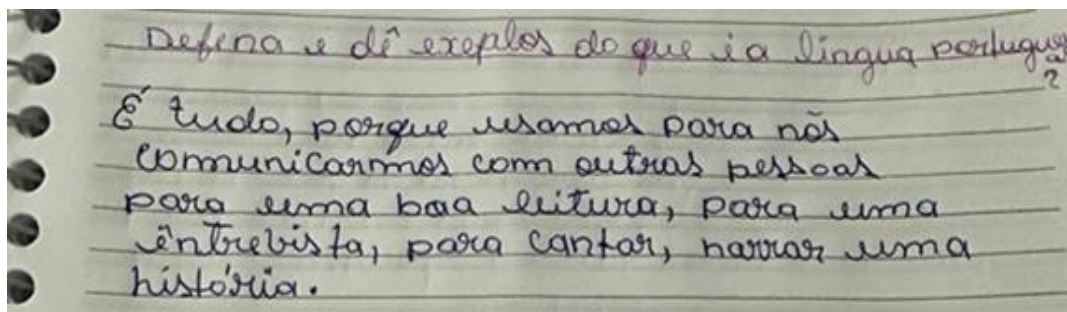 Defina e dê exeplos do que é a língua portuguesa?
É tudo, porque usamos para nós
comunicarmos com outras pessoas
para uma boa leitura, para uma
êntrevista, para cantar, narrar uma
história.